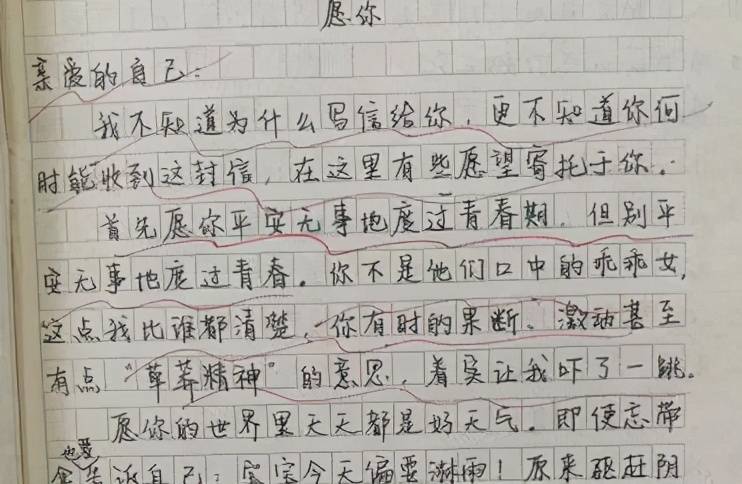 愿你
亲爱的自己：
我不知道为什么写信给你，更不知道你何
时能收到这封信，在这里有些愿望寄托于你。
首先愿你平安无事地度过青春期，但别平
安无事地度过青春。你不是他们口中的乖乖女，
这点我比谁都清楚，你有时的果断、激动甚至
有点“草莽精神”的意思，着实让我吓了一跳。
愿你的世界里天天都是好天气。即使忘带
也要
告诉自己：宝宝今天偏要淋雨！原来